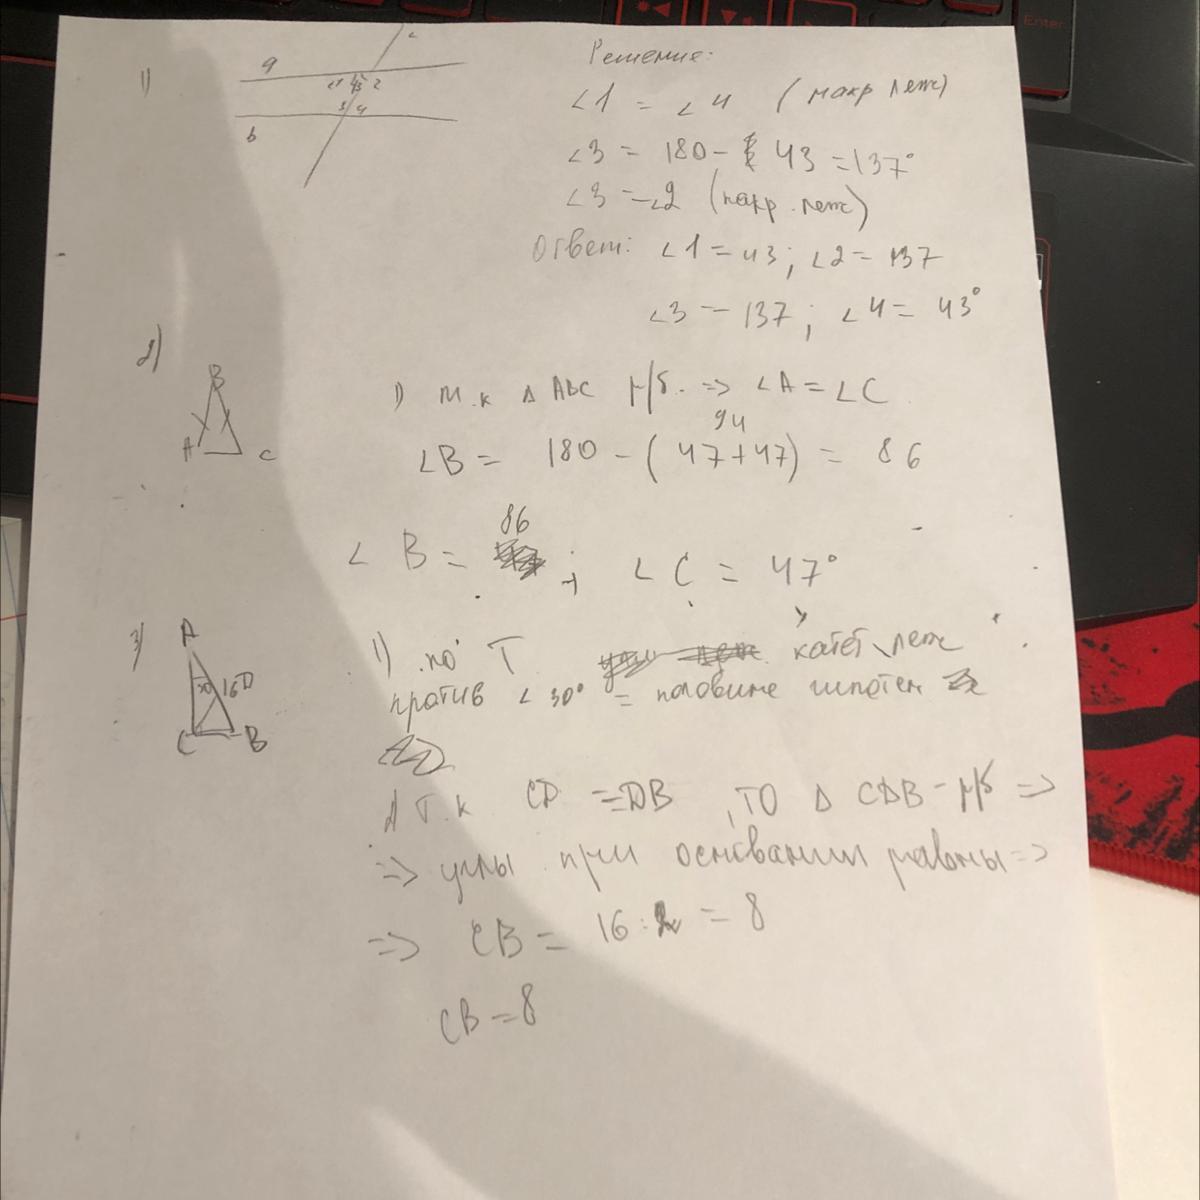 Enter
1)
a
c
∠1 43 2
3 4
b
Решение:
∠1 = ∠4 (накр леж)
∠3 = 180 - 43 = 137°
∠3 = ∠2 (накр. леж)
Ответ: ∠1 = 43; ∠2 = 137
∠3 = 137; ∠4 = 43°
2)
B
A C
1) т.к Δ ABC р/б. => ∠A = ∠C
94
∠B = 180 - (47+47) = 86
86
∠ B = ; ∠ C = 47°
3)
A
30 16 D
C B
1) по Т катет, леж
против ∠ 30° = половине гипотен
2) Т.к CD = DB , ТО Δ CDB - р/б =>
=> углы при основании равны =>
=> CB = 16 : 2 = 8
CB = 8